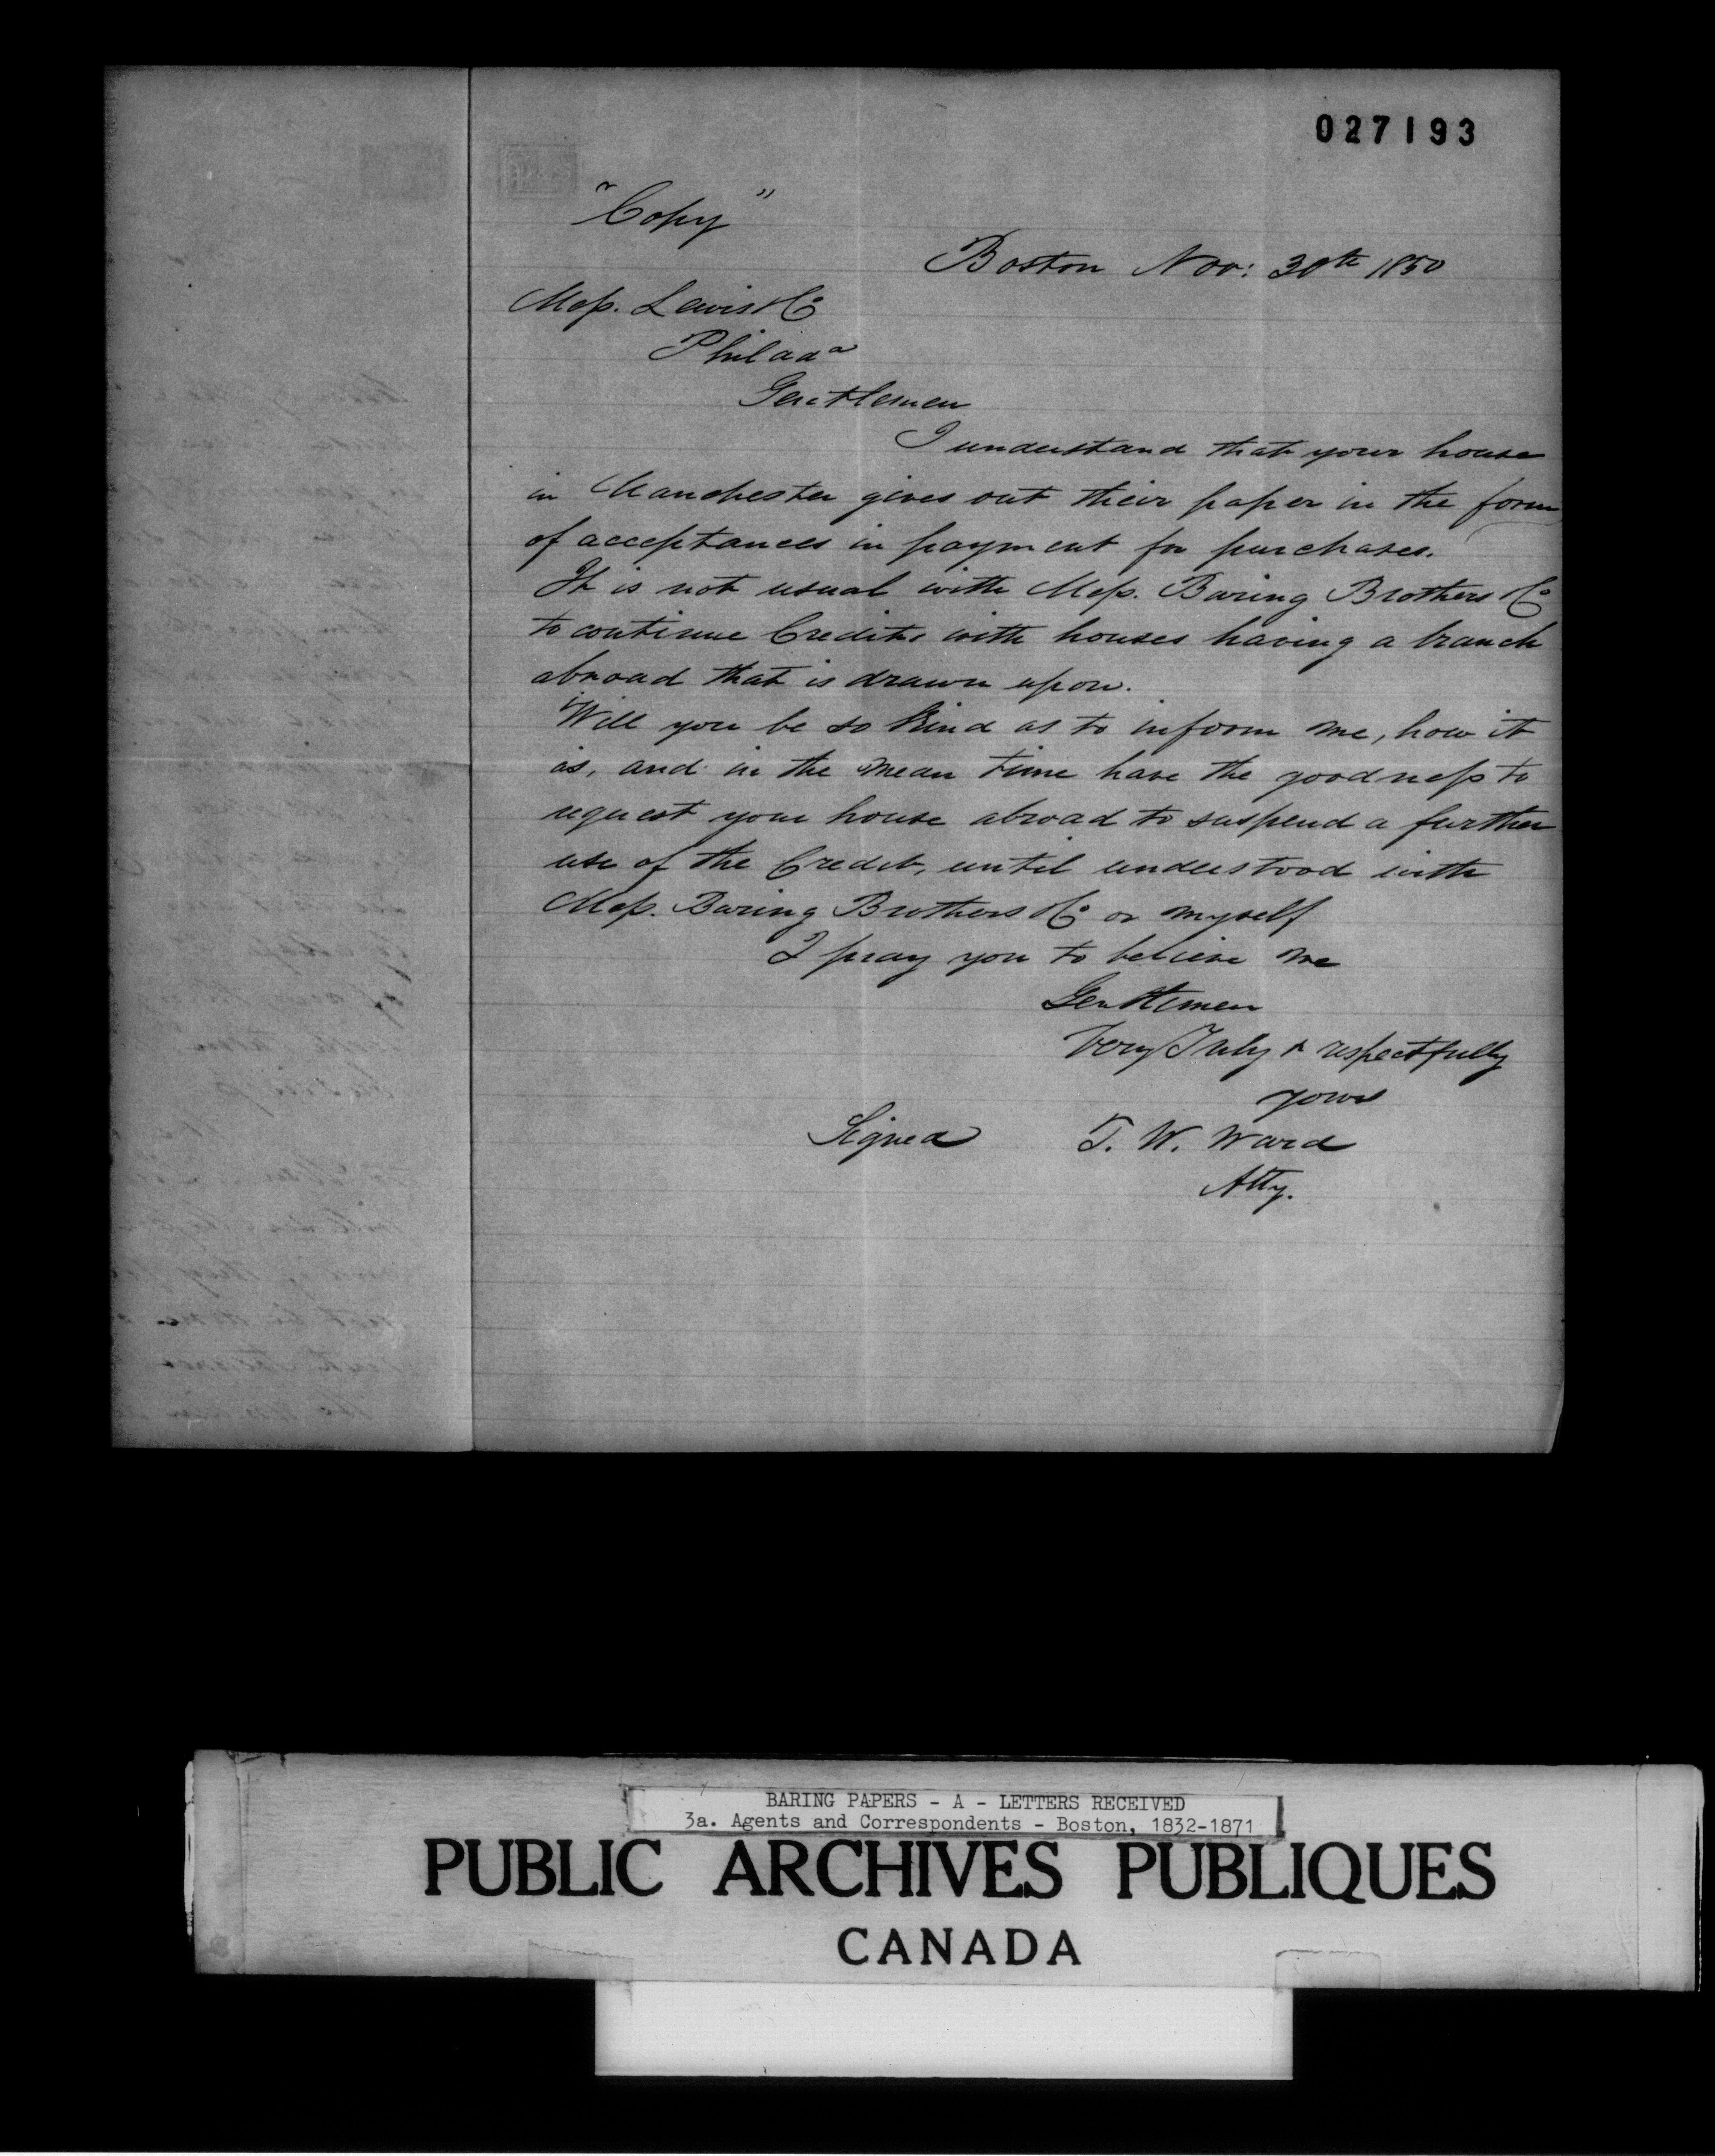 027193
"Copy"
Boston Nov: 30th 1850
Mess. Lewis & Co
Philada
Gentlemen
I understand that your house
in Manchester gives out their paper in the form
of acceptances in payment for purchases.
It is not usual with Mess. Baring Brothers & Co
to continue Credits with houses having a branch
abroad that is drawn upon.
Will you be so kind as to inform me, how it
is, and in the mean time have the goodness to
request your house abroad to suspend a further
use of the Credit, until understood with
Mess. Baring Brothers & Co or myself
I pray you to believe me
Gentlemen
Very Truly & respectfully
yours
Signed T. W. Ward
Atty.
BARING PAPERS - A - LETTERS RECEIVED
3a. Agents and Correspondents - Boston, 1832-1871
PUBLIC ARCHIVES PUBLIQUES
CANADA